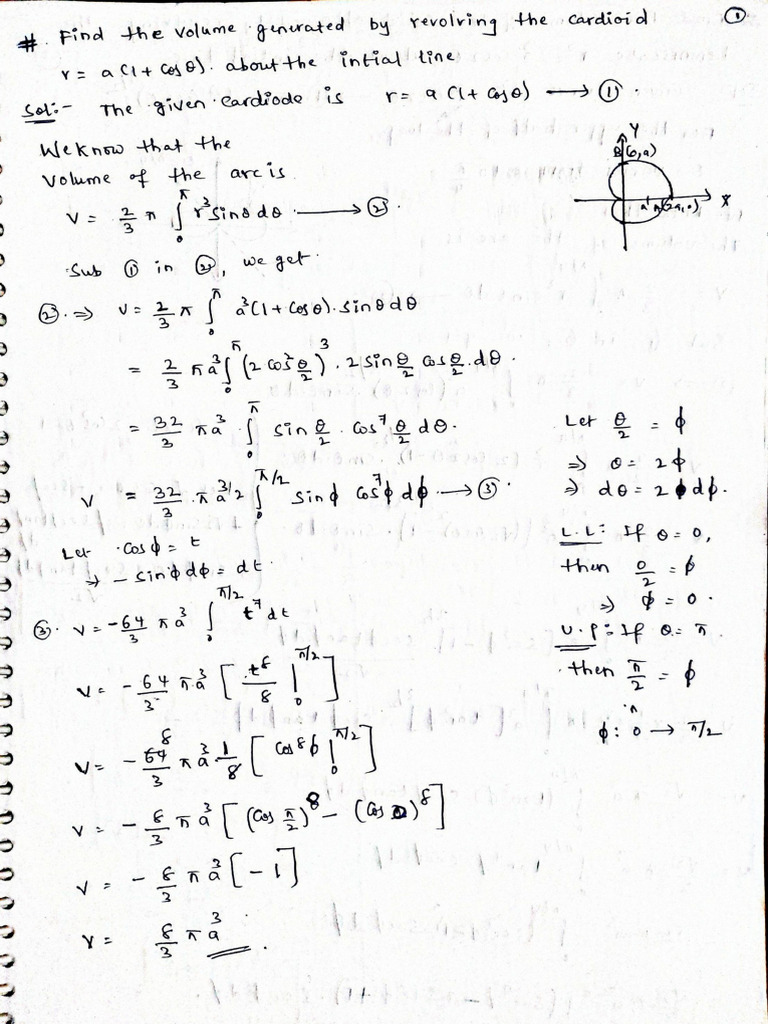 ①
# Find the volume generated by revolving the cardioid
r = a(1 + cosθ). about the intial line
Sol:- The given cardiode is r = a (1 + cosθ) ⟶ ①.
We know that the
volume of the arc is
V = 2/3 π ∫₀^π r³ sinθ dθ ⟶ ②.
Y
B(0,a)
X
Sub ① in ②, we get.
②. ⇒ V = 2/3 π ∫₀^π a³(1 + cosθ). sinθ dθ
= 2/3 π a³ ∫₀^π (2 cos² θ/2)³ . 2 sin θ/2 cos θ/2 . dθ.
= 32/3 π a³ . ∫₀^π sin θ/2 . cos⁷ θ/2 dθ.
V = 32/3 . π a³ 2 ∫₀^π/2 sinϕ cos⁷ϕ dϕ ⟶ ③.
Let cosϕ = t
⇒ - sinϕ dϕ = dt.
③. V = -64/3 π a³ ∫₀^π/2 t⁷ dt
V = - 64/3 π a³ [ t⁸/8 |₀^π/2 ]
V = - 64/3 8 π a³ . 1/8 [ cos⁸ϕ |₀^π/2 ]
V = - 8/3 π a³ [ (cos π/2)⁸ - (cos 0)⁸ ]
V = - 8/3 π a³ [ - 1 ]
V = 8/3 π a³.
Let θ/2 = ϕ
⇒ θ = 2ϕ
⇒ dθ = 2 dϕ.
L.L: If θ = 0,
then 0/2 = ϕ
⇒ ϕ = 0.
U.P: If θ = π.
then π/2 = ϕ
ϕ: 0 → π/2